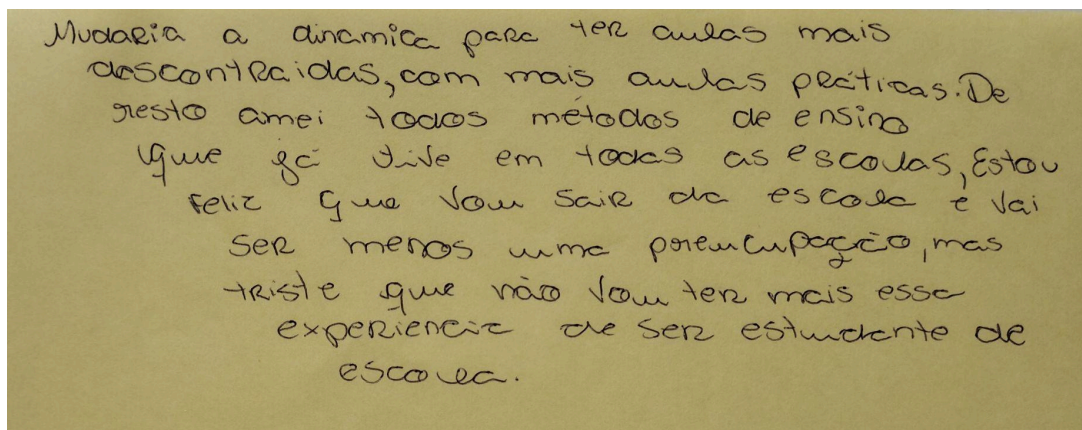 Mudaria a dinamica para ter aulas mais
descontraidas, com mais aulas práticas. De
resto amei todos métodos de ensino
que já tive em todas as escolas, Estou
feliz que vou sair da escola e vai
ser menos uma preucupação, mas
triste que não vou ter mais essa
experiencia de ser estudante de
escola.